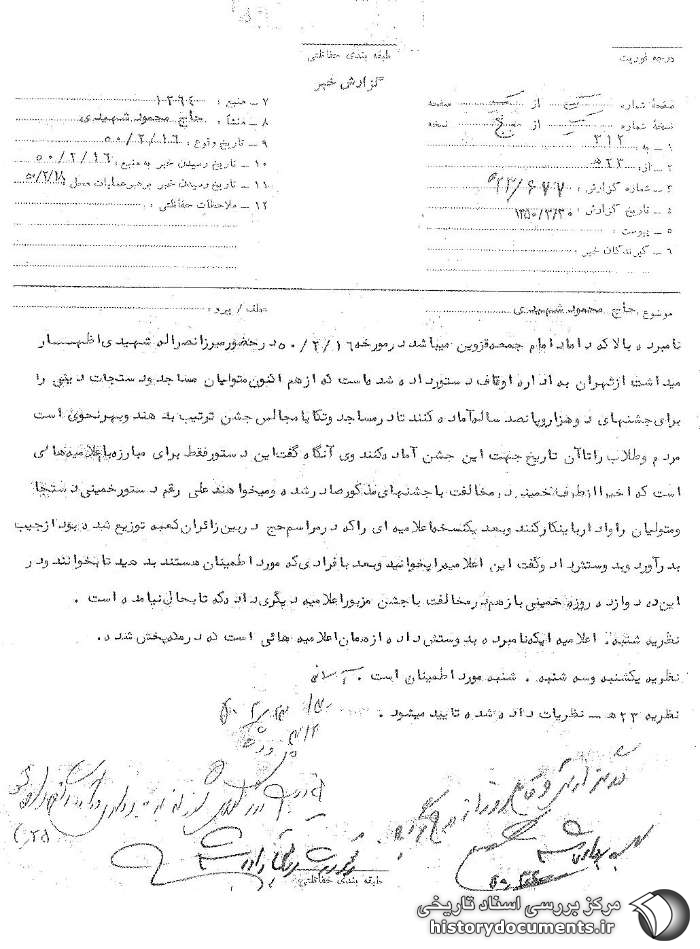 درجه فوریت
طبقه بندی حفاظتی
گزارش خبر
صفحه شماره یک از یک صفحه
نسخه شماره یک از پنج نسخه
۱ - به : ۳۱۲
۲ - از : ۲۳ ه
۳ - شماره گزارش : ۲۳/۶۷۷ ه
۴ - تاریخ گزارش : ۱۳۵۰/۳/۳۰
۵ - پیوست :
۶ - گیرندگان خبر :
۷ - منبع : ۱۲۹۴
۸ - منشأ : حاج محمود شهیدی
۹ - تاریخ وقوع : ۵۰/۲/۱۶
۱۰ - تاریخ رسیدن خبر به منبع : ۵۰/۲/۱۶
۱۱ - تاریخ رسیدن خبر برهبر عملیات محل : ۵۰/۲/۱۸
۱۲ - ملاحظات حفاظتی :
موضوع : حاج محمود شهیدی
عطف / پیرو :
نامبرده بالا که داماد امام جمعه قزوین میباشد در مورخه ۵۰/۲/۱۶ در حضور میرزا نصراله شهیدی اظهار
میداشت از تهران به اداره اوقاف دستور داده شده است که از هم اکنون متولیان مساجد و دستجات دینی را
برای جشنهای دو هزار و پانصد ساله آماده کنند تا در مساجد و تکایا مجالس جشن ترتیب بدهند و بهر نحوی است
مردم و طلاب را تا آن تاریخ جهت این جشن آماده کنند وی آنگاه گفت این دستور فقط برای مبارزه با اعلامیه هائی
است که اخیرا از طرف خمینی در مخالفت با جشنهای مذکور صادر شده و میخواهند علی رغم دستور خمینی دستجات
و متولیان را وادار باینکار کنند و بعد یکنسخه اعلامیه ای را که در مراسم حج در بین زائران کعبه توزیع شده بود از جیب
بدر آورد و بدوستش داد و گفت این اعلامیه را بخوانید و بعد بافرادی که مورد اطمینان هستند بدهید تا بخوانند و در
این ده دوازده روزه خمینی باز هم در مخالفت با جشن مزبور اعلامیه دیگری داده که تا بحال نیامده است .
نظریه شنبه . اعلامیه ایکه نامبرده بدوستش داده از همان اعلامیه هائی است که در مکه پخش شده .
نظریه یکشنبه و سه شنبه . شنبه مورد اطمینان است .
نظریه ۲۳ ه - نظریات داده شده تایید میشود .
۳۱۲
طبقه بندی حفاظتی
مرکز بررسی اسناد تاریخی
historydocuments.ir